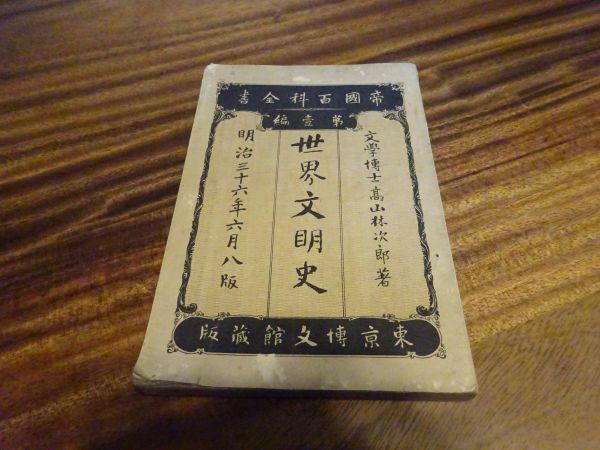 帝國百科全書
第壹編
文學博士高山林次郎著
世界文明史
明治三十六年六月八版
東京博文館藏版